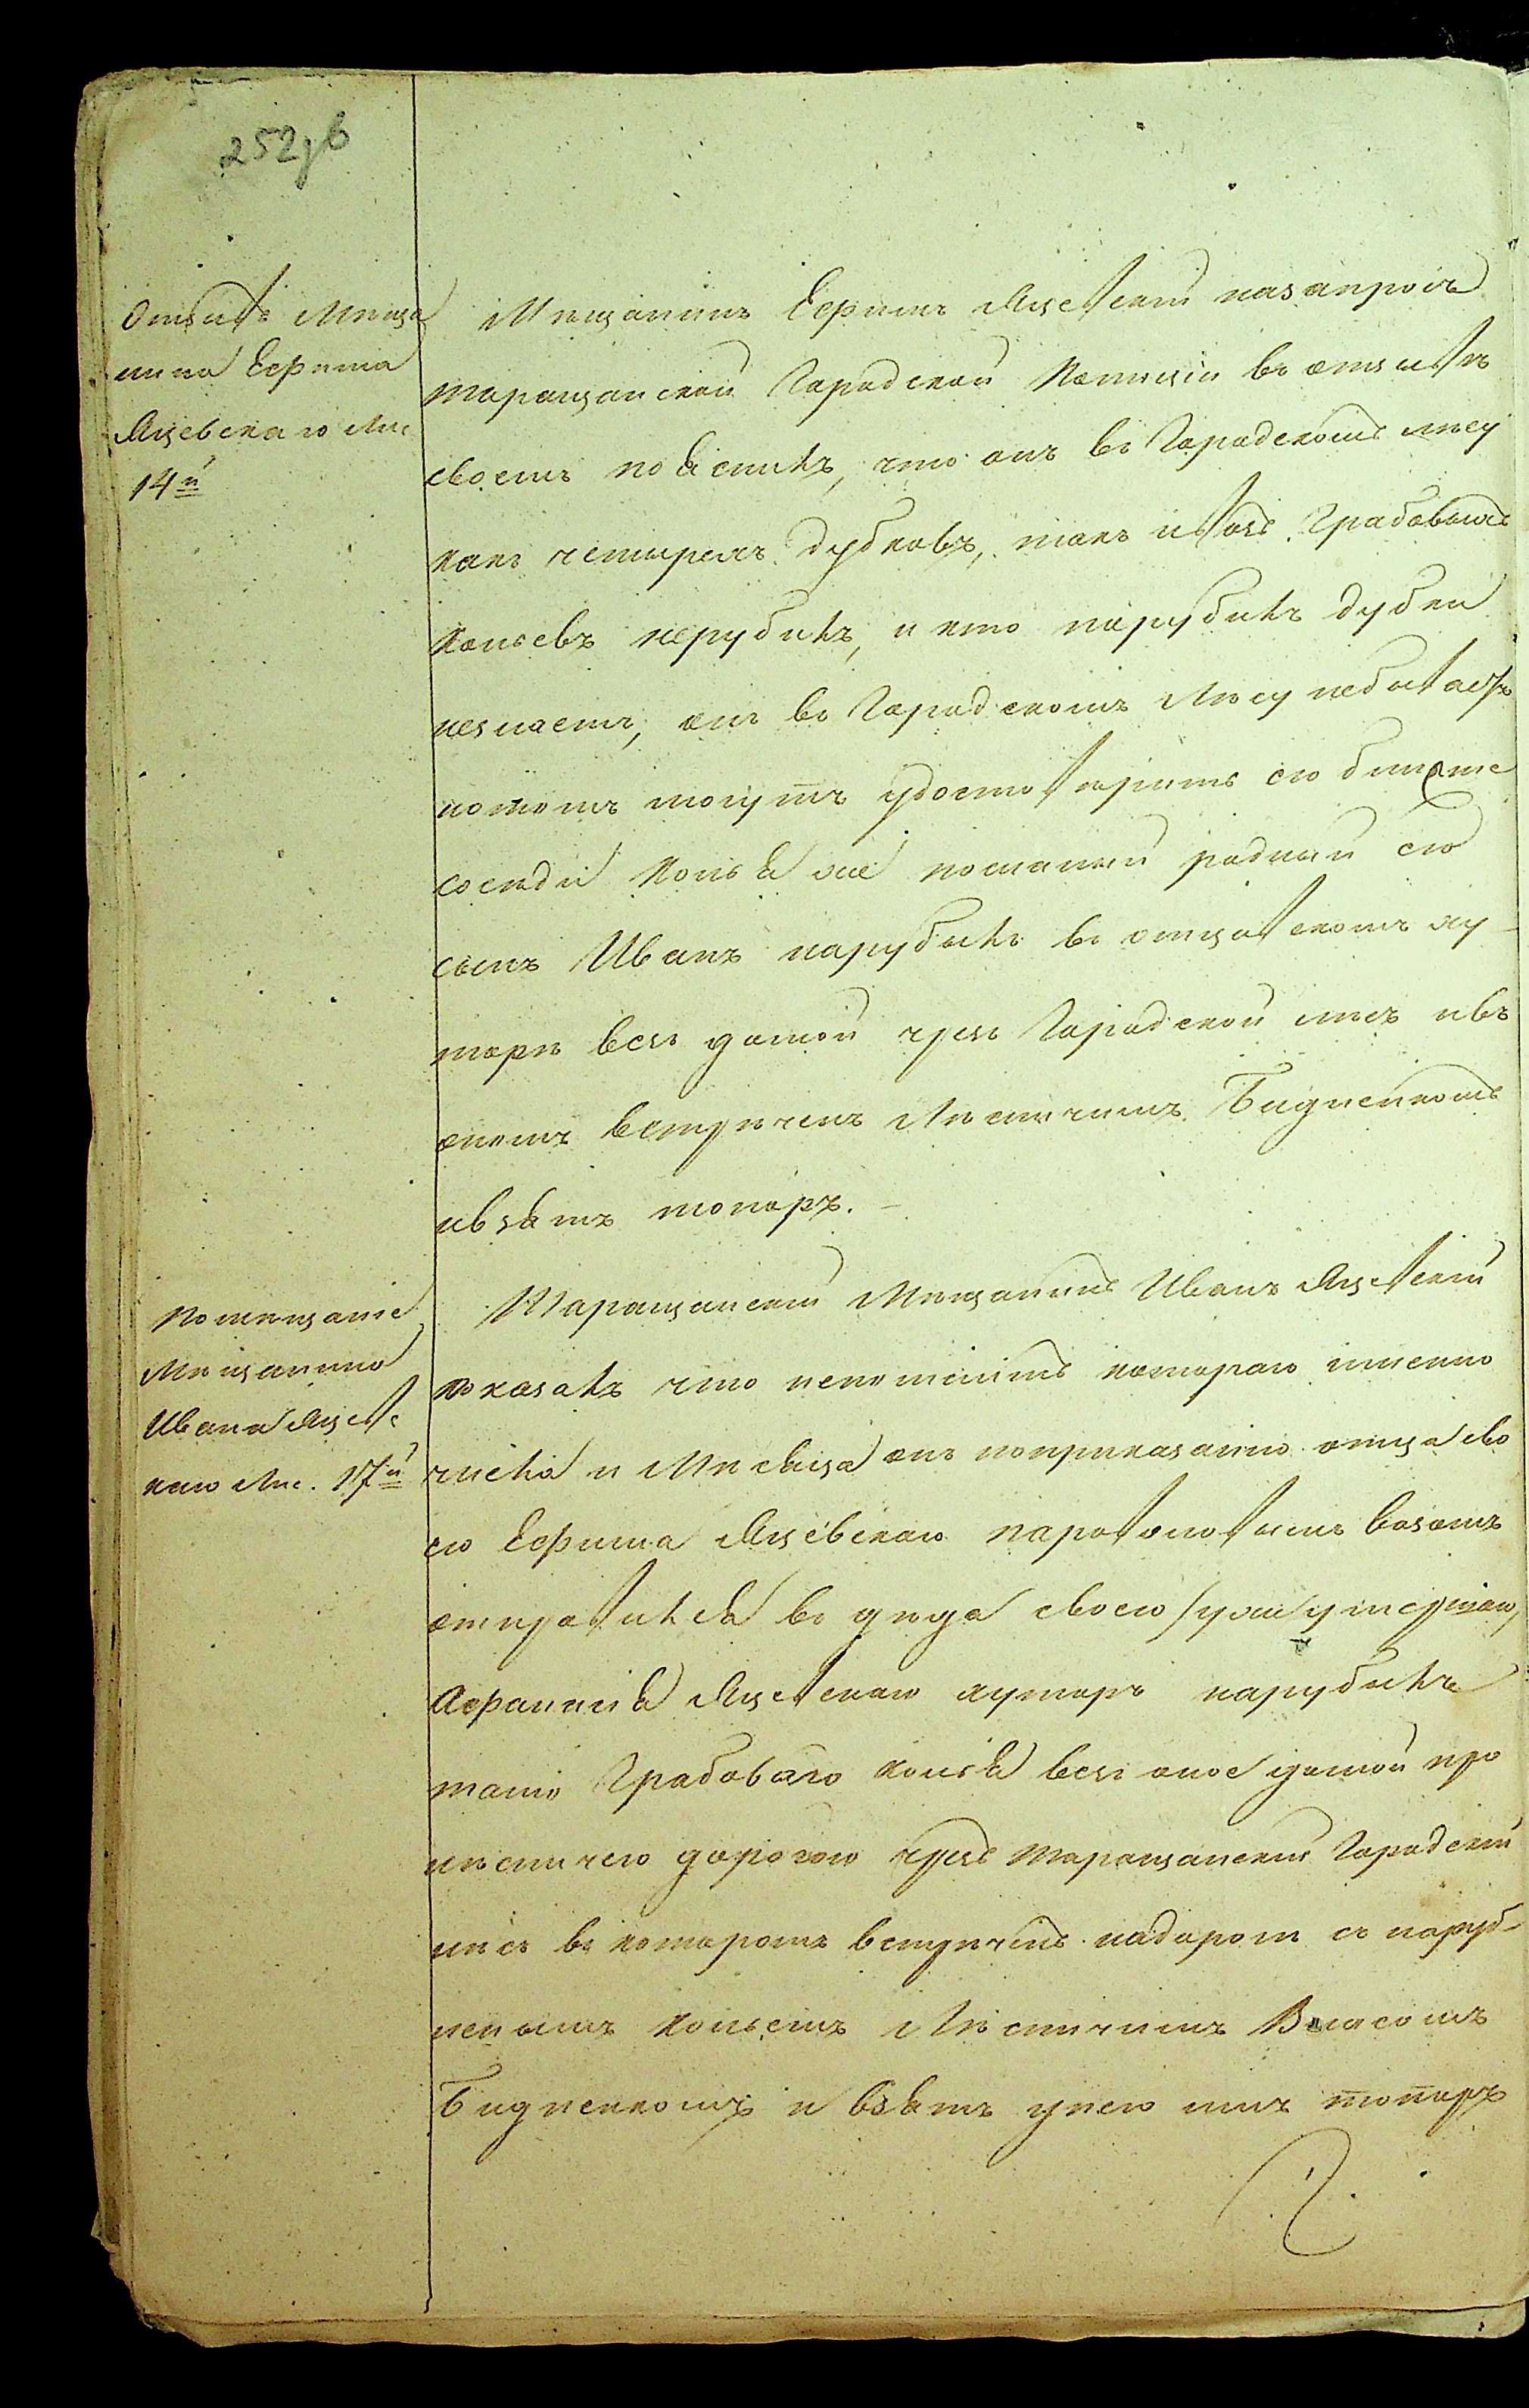 252зв
Отзывъ Мѣща
нина Ефрима
Яцевскаго Лис
14й
Мѣщанинъ Ефримъ Яцевскій назапросъ
Таращанской Городской Полиціи въ отзывѣ
своемъ пояснилъ, что онъ въ Городскомъ лѣсу
какъ четырехъ дубковъ, такъ и Грабовыхъ
Кольевъ нерубилъ, и кто порубилъ дубки
незнаетъ, онъ въ Городскомъ Лѣсу небывалъ
потомъ могутъ удостовѣрить его ближние
соседи Колья же посланный родный его
сынъ Иванъ нарубилъ въ отцовскомъ ху-
торѣ везъ домой чрезъ Городской лѣсъ и въ
ономъ встреченъ Лѣсничимъ Бидненкомъ
и взятъ топоръ. –
Помещаніе
Мѣщанина
Ивана Яцевс
каго Лис. 17й
Таращанскій Мѣщанинъ Иванъ Яцевскій
показалъ что непомнитъ котораго именно
числа и Мѣсяца онъ поприказанію отца сво
его Ефрима Яцевскаго пароволовымъ возомъ
отправился въ дѣда своего /уже умершаго/
Афанасія Яцевскаго хуторъ нарубилъ
тамо Грабоваго колья везъ оное домой про
ѣзжею дорогою чрезъ Таращанскій Городской
лѣсъ въ которомъ встречѣнъ надорогѣ съ наруб-
ленымъ кольемъ Лѣсничимъ Власомъ
Бидненкомъ и взятъ унего имъ топоръ